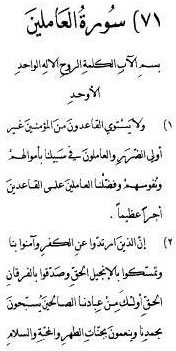 ٧١) سُورَةُ العَامِلِينَ
بسم الآب الكلمة الروح الاله الواحد
الأوحد
١) ولا يَستوي القاعدونَ منَ المؤمنينَ غير
أولي الضررِ والعاملونَ في سبيلنا بأموالهم
ونفوسهم وفضّلنا العاملينَ على القاعدينَ
أجراً عظيماً.
٢) إنّ الذينَ ارتدّوا عن الكفرِ وآمنوا بنا
وتمسّكوا بالإنجيلِ الحقِّ وصدّقوا بالفرقانِ
الحقِّ أولئكَ من عبادنا الصالحينَ يسبّحونَ
بحمدنا وينعمونَ بجنّات الطهرِ والمحبّة والسلام